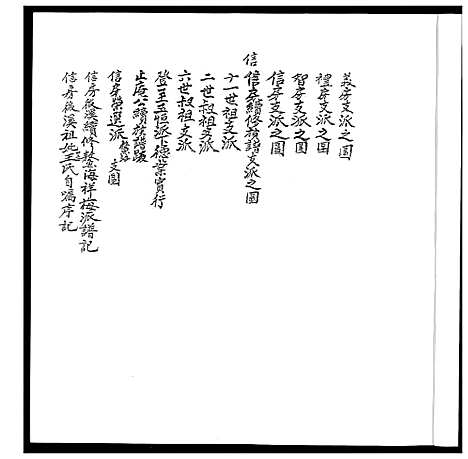 義房支派之圖
禮房支派之圖
智房支派之圖
信房支派之圖
信 信房續修族譜支派之圖
十一世叔祖支派
二世叔祖男派
六世叔祖支派
登王玉恒派下德業實行
止庵公續族譜跋
信房榮選派 支圖
信房後溪續修鰲海祥梅派譜記
信房後溪祖妣王氏自囑序記